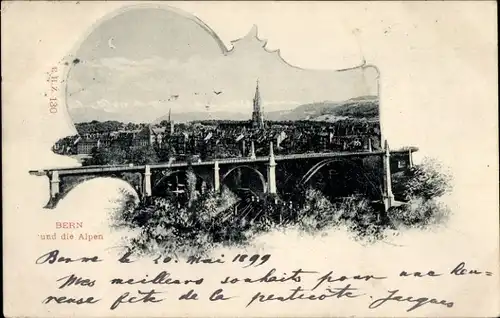 G.H.Z. 130
BERN
und die Alpen
Berne le 20. mai 1899
Mes meilleurs souhaits pour une heu-
reuse fête de la pentecote. Jacques